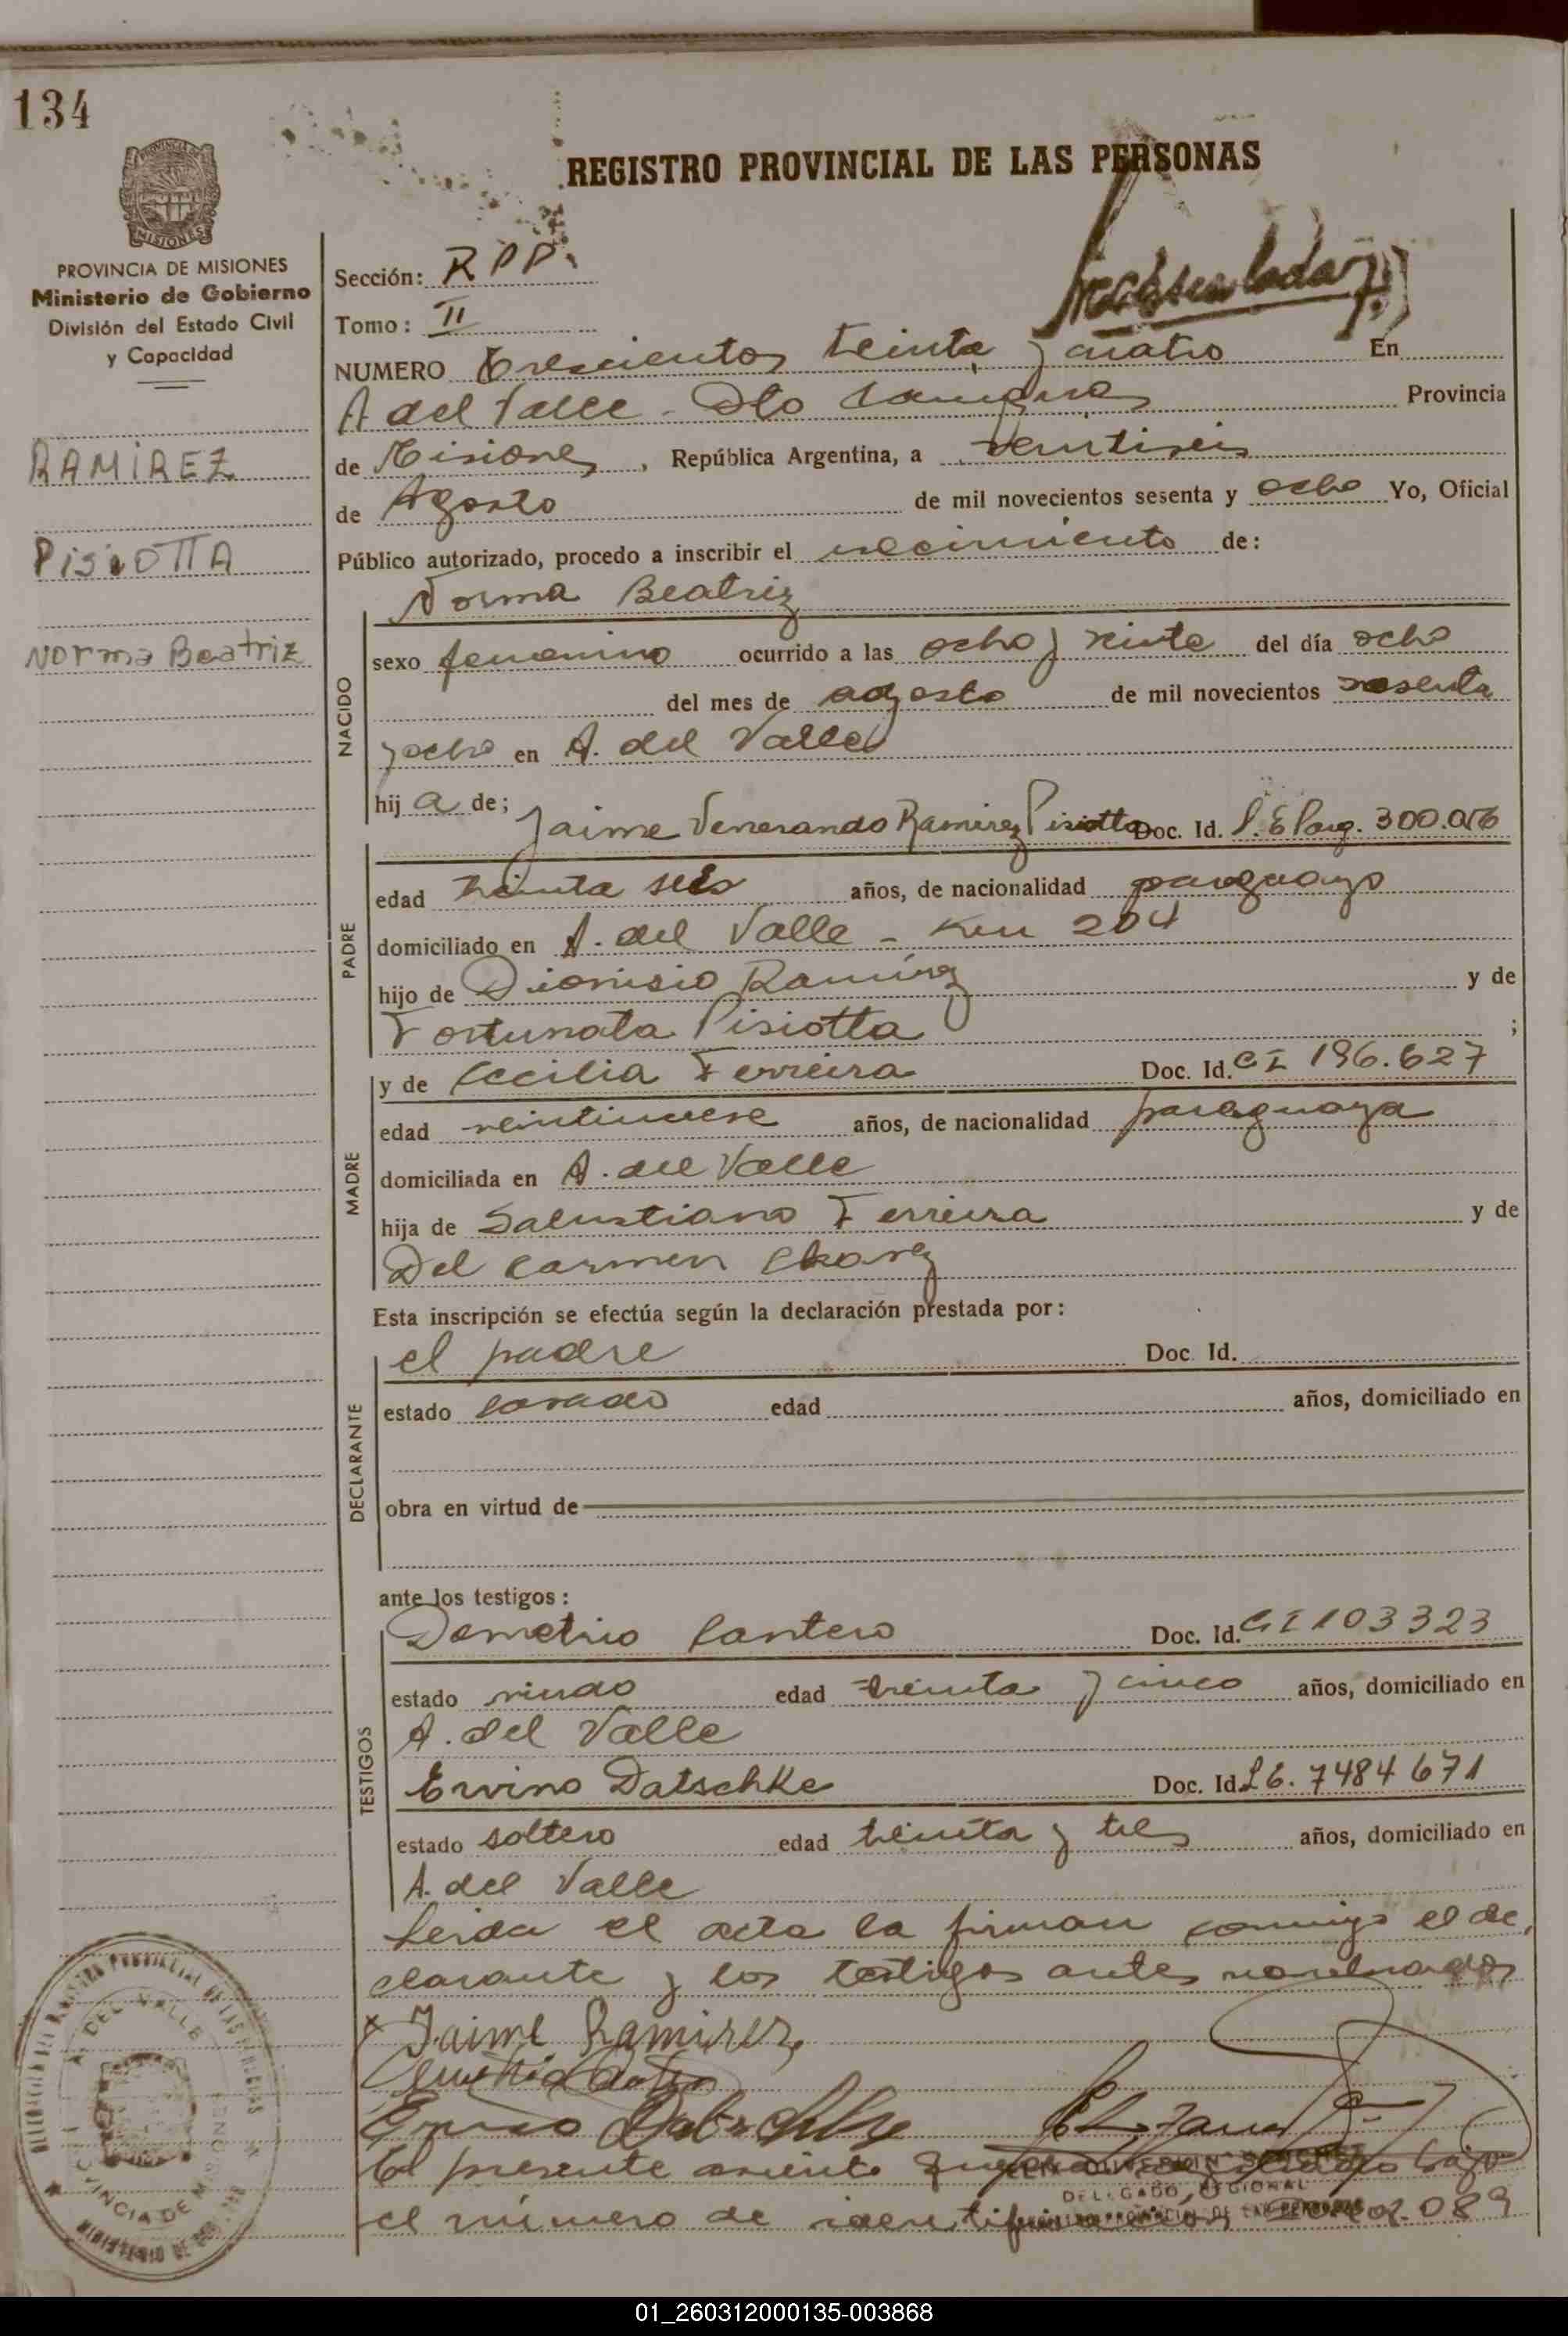 134
REGISTRO PROVINCIAL DE LAS PERSONAS
MISIONES
PROVINCIA DE MISIONES
Ministerio de Gobierno
División del Estado Civil
y Capacidad
RAMIREZ
PISIOTTA
Norma Beatriz
Sección: R P P.
Tomo: II
NUMERO Trescientos treinta y cuatro En
A del Valle - Dto Cainguas Provincia
de Misiones, República Argentina, a veintiseis
de Agosto de mil novecientos sesenta y ocho Yo, Oficial
Público autorizado, procedo a inscribir el nacimiento de:
Norma Beatriz
NACIDO
sexo femenino ocurrido a las ocho y veinte del día ocho
del mes de agosto de mil novecientos sesenta
y ocho en A. del Valle
hij a de; Jaime Venerando Ramirez Pisiotta Doc. Id. Parg. 300.076
PADRE
edad treinta seis años, de nacionalidad paraguayo
domiciliado en A. del Valle - Km 204
hijo de Dionisio Ramirez y de
Fortunata Pisiotta ;
y de Cecilia Ferreira Doc. Id. CI 196.627
MADRE
edad veintinueve años, de nacionalidad paraguaya
domiciliada en A. del Valle
hija de Salustiano Ferreira y de
Del Carmen Chavez
Esta inscripción se efectúa según la declaración prestada por:
el padre Doc. Id.
DECLARANTE
estado casado edad años, domiciliado en
obra en virtud de
ante los testigos:
Demetrio Cantero Doc. Id. CI 103323
TESTIGOS
estado viudo edad treinta y cinco años, domiciliado en
A. del Valle
Ervino Datschke Doc. Id. LE. 7484671
estado soltero edad treinta y tres años, domiciliado en
A. del Valle
Leida el acta la firman conmigo el de,
clarante y los testigos antes nombrados
x Jaime Ramirez
Ervino Datschke
El presente asiento bajo
DELEGADO REGIONAL
el número de 089
A. DEL VALLE
01_260312000135-003868